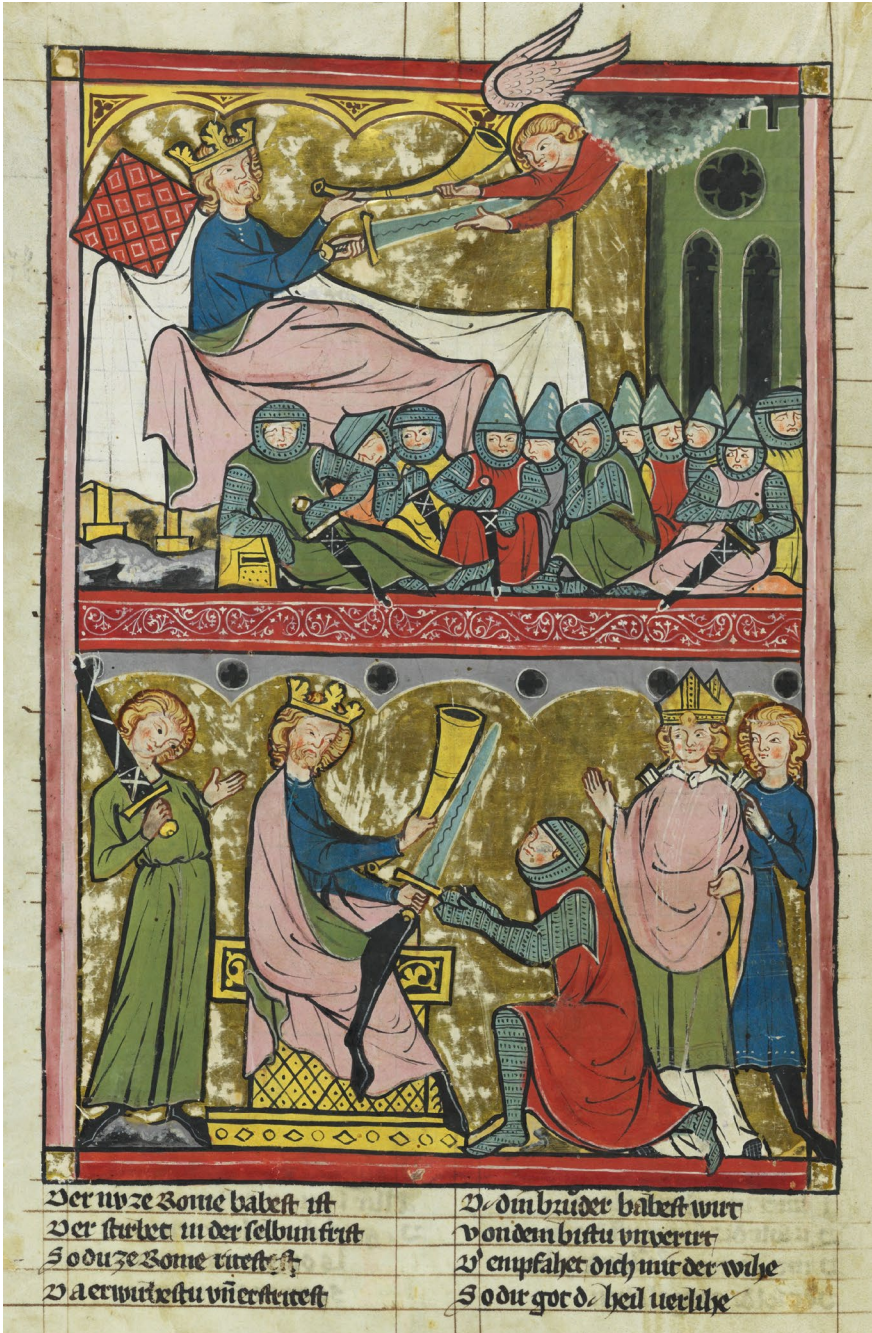 Der nu ze Rome babest ist
Der stirbet in der selbun frist
So du ze Rome ritest
Da erwirbestu vn̄ erstritest
Dc din brůder babest wirt
von dem bistu vnverirt
D' empfahet dich mit der wihe
So dir got dc heil verlihe